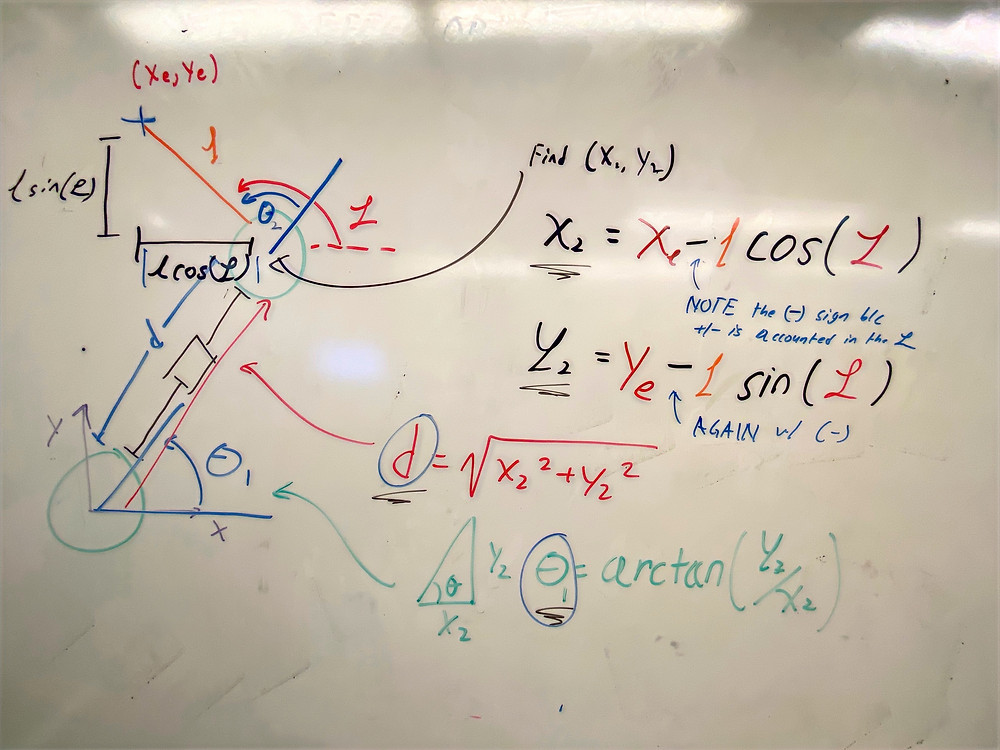 (Xe, Ye)
l
l sin(L)
θ₂
L
l cos(L)
d
Y
θ₁
X
Find (X₂, Y₂)
X₂ = Xe - l cos(L)
NOTE the (-) sign b/c
+/- is accounted in the L
Y₂ = Ye - l sin(L)
AGAIN w/ (-)
d = √X₂² + Y₂²
θ
Y₂
X₂
θ₁ = arctan(Y₂/X₂)